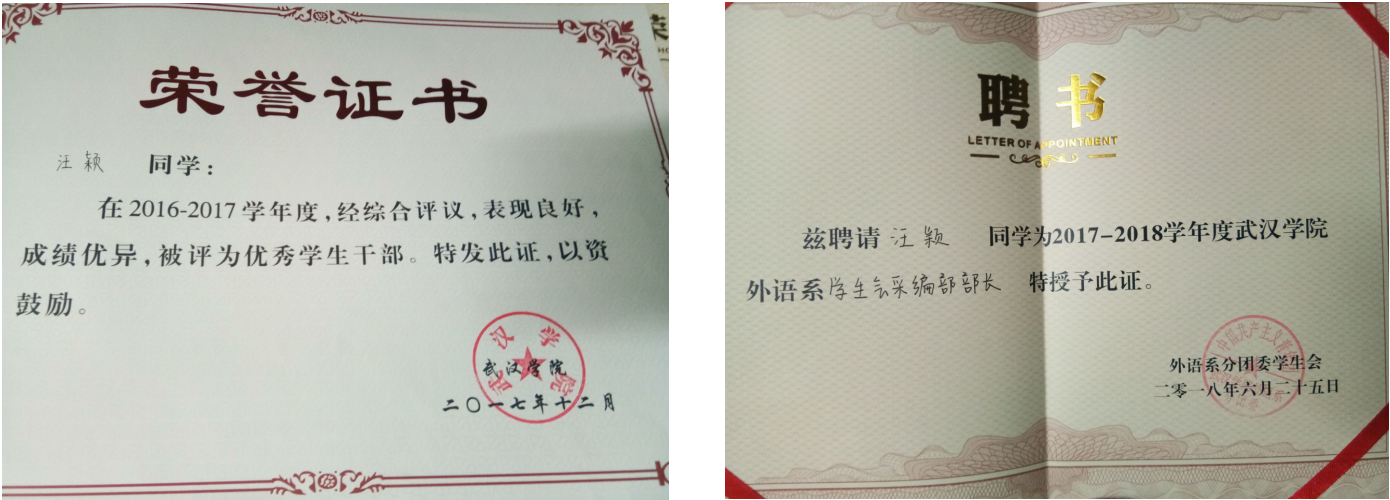 荣誉证书
汪颖 同学：
在2016-2017学年度，经综合评议，表现良好，
成绩优异，被评为优秀学生干部。特发此证，以资
鼓励。
武汉学院
武汉学院
二〇一七年十二月
聘书
LETTER OF APPOINTMENT
兹聘请 汪颖 同学为2017-2018学年度武汉学院
外语系学生会采编部部长 特授予此证。
外语系分团委学生会
二零一八年六月二十五日